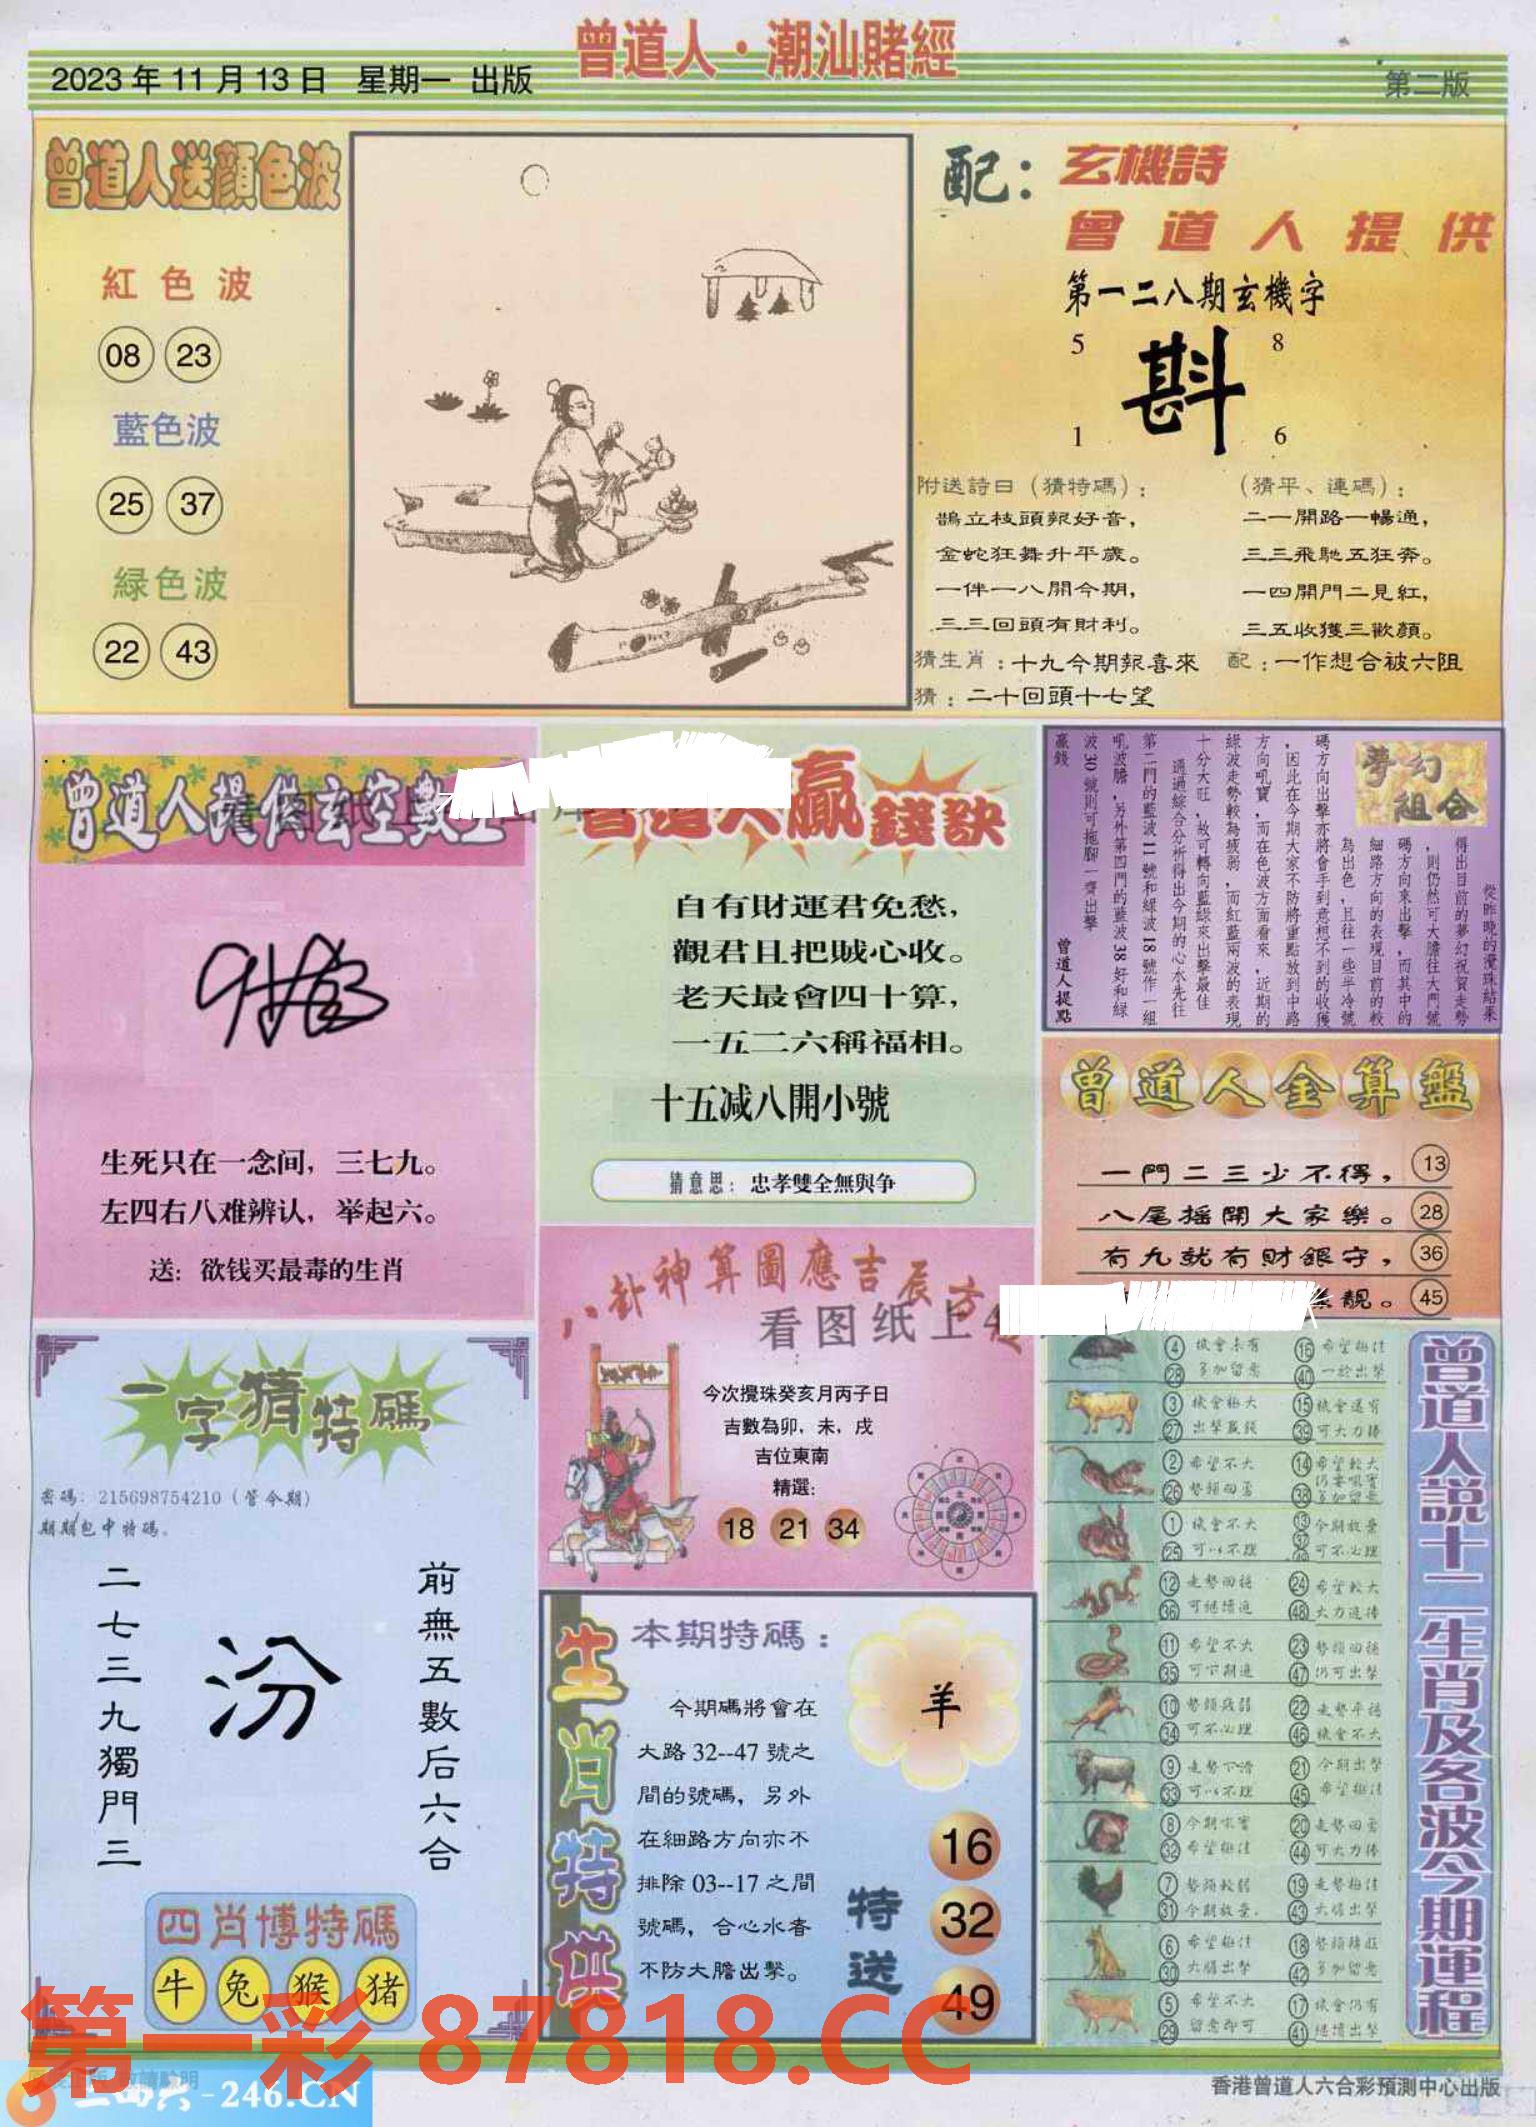 曾道人·潮汕賭經
2023 年 11 月 13 日 星期一 出版
第二版
曾道人送顏色波
紅色波
08 23
藍色波
25 37
緑色波
22 43
配：玄機詩
曾道人提供
第一二八期玄機字
5 8
斟
1 6
附送詩日（猜特碼）：
鵲立枝頭報好音，
金蛇狂舞升平歲。
一伴一八開今期，
三三回頭有財利。
（猜平、連碼）：
二一開路一暢通，
三三飛馳五狂奔。
一四開門二見紅，
三五收獲三歡顏。
猜生肖：十九今期報喜來
配：一作想合被六阻
猜：二十回頭十七望
曾道人提供玄空數
生死只在一念间，三七九。
左四右八难辨认，举起六。
送：欲钱买最毒的生肖
贏錢訣
自有財運君免愁，
觀君且把贼心收。
老天最會四十算，
一五二六稱福相。
十五减八開小號
猜意思：忠孝雙全無與争
夢幻組合
從昨晚的攪珠結果
得出目前的夢幻祝賀走勢
，則仍然可大膽往大門號
碼方向來出擊，而其中的
細路方向的表現目前的較
為出色，且往一些半冷號
碼方向出擊亦將會手到意想不到的收獲
，因此在今期大家不防將重點放到中路
方向吼寶，而在色波方面看來，近期的
綠波走勢較為疲弱，而紅藍兩波的表現
十分大旺，故可轉向藍綠來出擊最佳
通過綜合分析得出今期的心水先往
第二門的藍波 11 號和綠波 18 號作一組
吼波膽，另外第四門的藍波 38 好和綠
波 30 號則可拖腳一齊出擊
贏錢
曾道人提點
曾道人金算盤
一門二三少不得， 13
八尾摇開大家樂。 28
有九就有財銀守， 36
靚。 45
八卦神算圖應吉辰方
看图纸上
今次攪珠癸亥月丙子日
吉數為卯、未、戌
吉位東南
精選：
18 21 34
一字猜特碼
密碼：215698754210（管今期）
期期包中特碼。
前無五數后六合
汾
二七三九獨門三
四肖博特碼
牛 兔 猴 猪
生肖特供
本期特碼：
羊
今期碼將會在
大路 32--47 號之
間的號碼，另外
在細路方向亦不
排除 03--17 之間
號碼，合心水者
不防大膽出擊。
特送
16
32
49
曾道人説十二生肖及各波今期運程
④ 機會未有 ⑯ 希望極佳
㉘ 多加留意 ㊵ 一於出擊
③ 機會極大 ⑮ 機會還有
㉗ 出擊贏錢 ㊴ 可大力捧
② 希望不大 ⑭ 希望較大
㉖ 勢頭回勇 ㊳
① 機會不大 ⑬ 今期放量
㉕ 可以不理 ㊲ 可不心理
⑫ 走勢回穩 ㉔ 希望較大
㊱ 可继續追 ㊽ 大力追捧
⑪ 希望不大 ㉓ 勢頭回穩
㉟ 可下期追 ㊼ 仍可出擊
⑩ 勢頭疲弱 ㉒ 走勢平穩
㉞ 可不心理 ㊻ 機會不大
⑨ 走勢下滑 ㉑ 今期出擊
㉝ 可以不理 ㊺ 希望極佳
⑧ 今期吼實 ⑳ 走勢回勇
㉜ 希望極佳 ㊹ 可大力捧
⑦ 勢頭較弱 ⑲ 走勢極佳
㉛ 今期放量. ㊸ 大膽出擊
⑥ 希望極佳 ⑱
㉚ 大膽出擊 ㊷ 多加留意
⑤ 希望不大 ⑰ 機會仍有
㉙ 留意即可 ㊶ 继續出擊
第一彩 87818.CC
二四六 -246.CN
香港曾道人六合彩預測中心出版